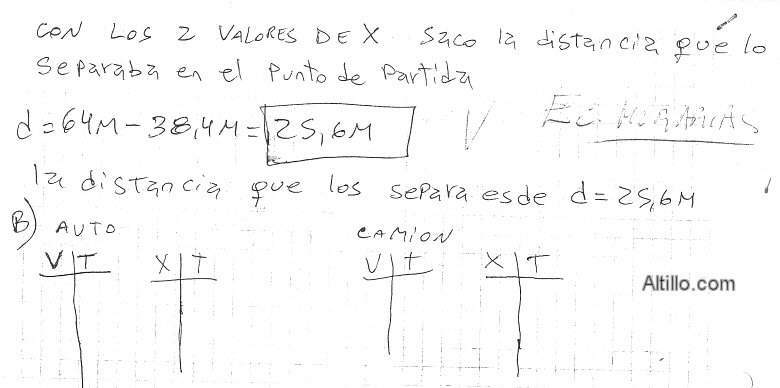 CON LOS 2 VALORES DE X SACO la distancia qué lo
separaba en el Punto de Partida
d = 64M - 38,4M = 25,6M V Ec. HORARIAS
la distancia que los separa es de d = 25,6M
B) AUTO CAMION
V T X T V T X T
Altillo.com